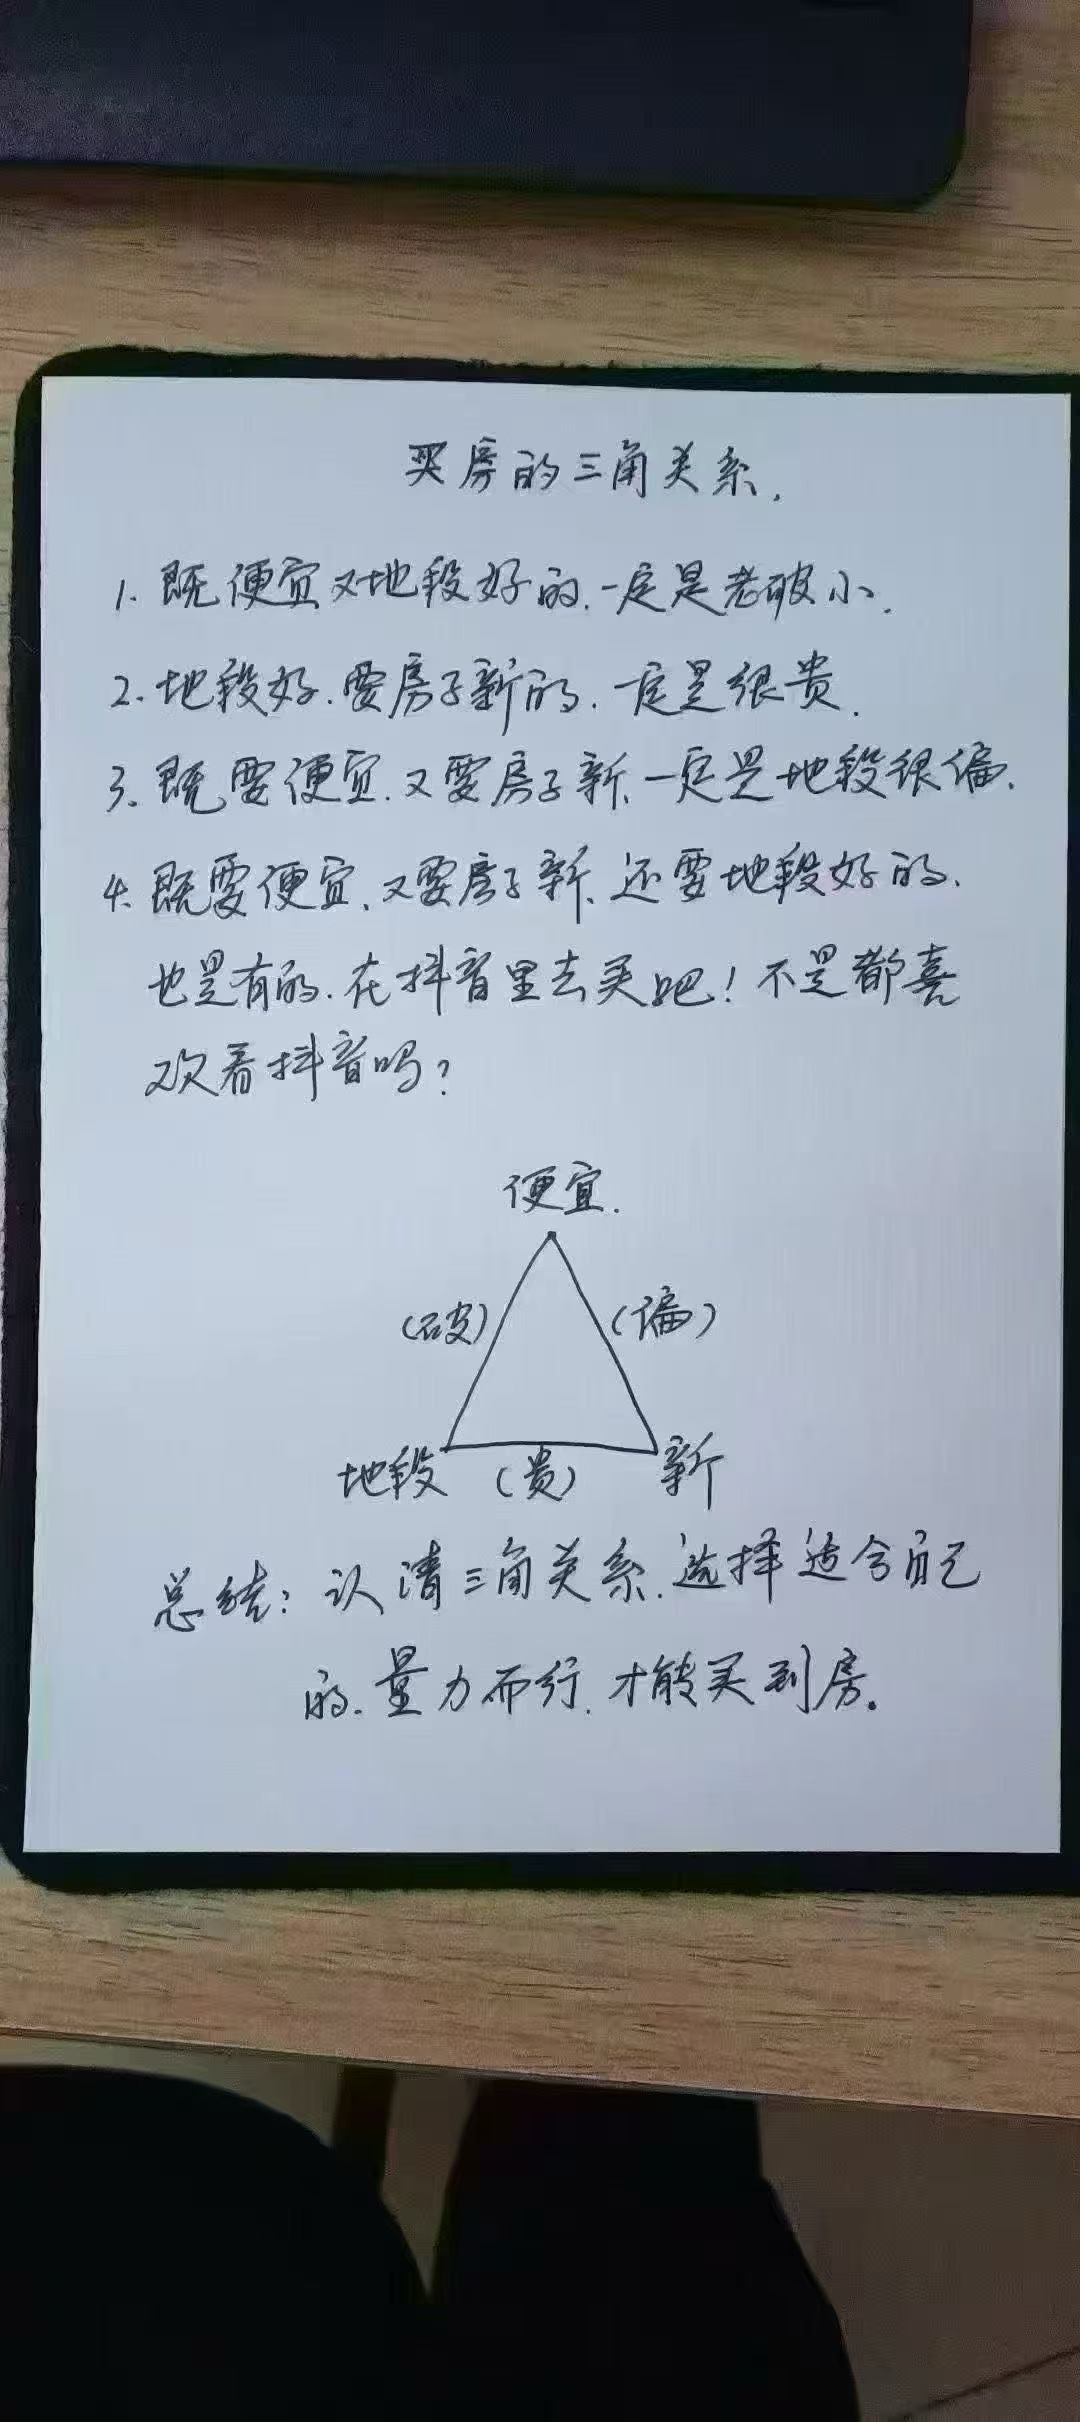 买房的三角关系.
1. 既便宜又地段好的.一定是老破小.
2. 地段好.要房子新的.一定是很贵.
3. 既要便宜.又要房子新.一定是地段很偏.
4. 既要便宜.又要房子新.还要地段好的.
也是有的.在抖音里去买吧!不是都喜
欢看抖音吗?
便宜.
(破) (偏)
地段 (贵) 新
总结:认清三角关系.选择适合自己
的.量力而行.才能买到房。